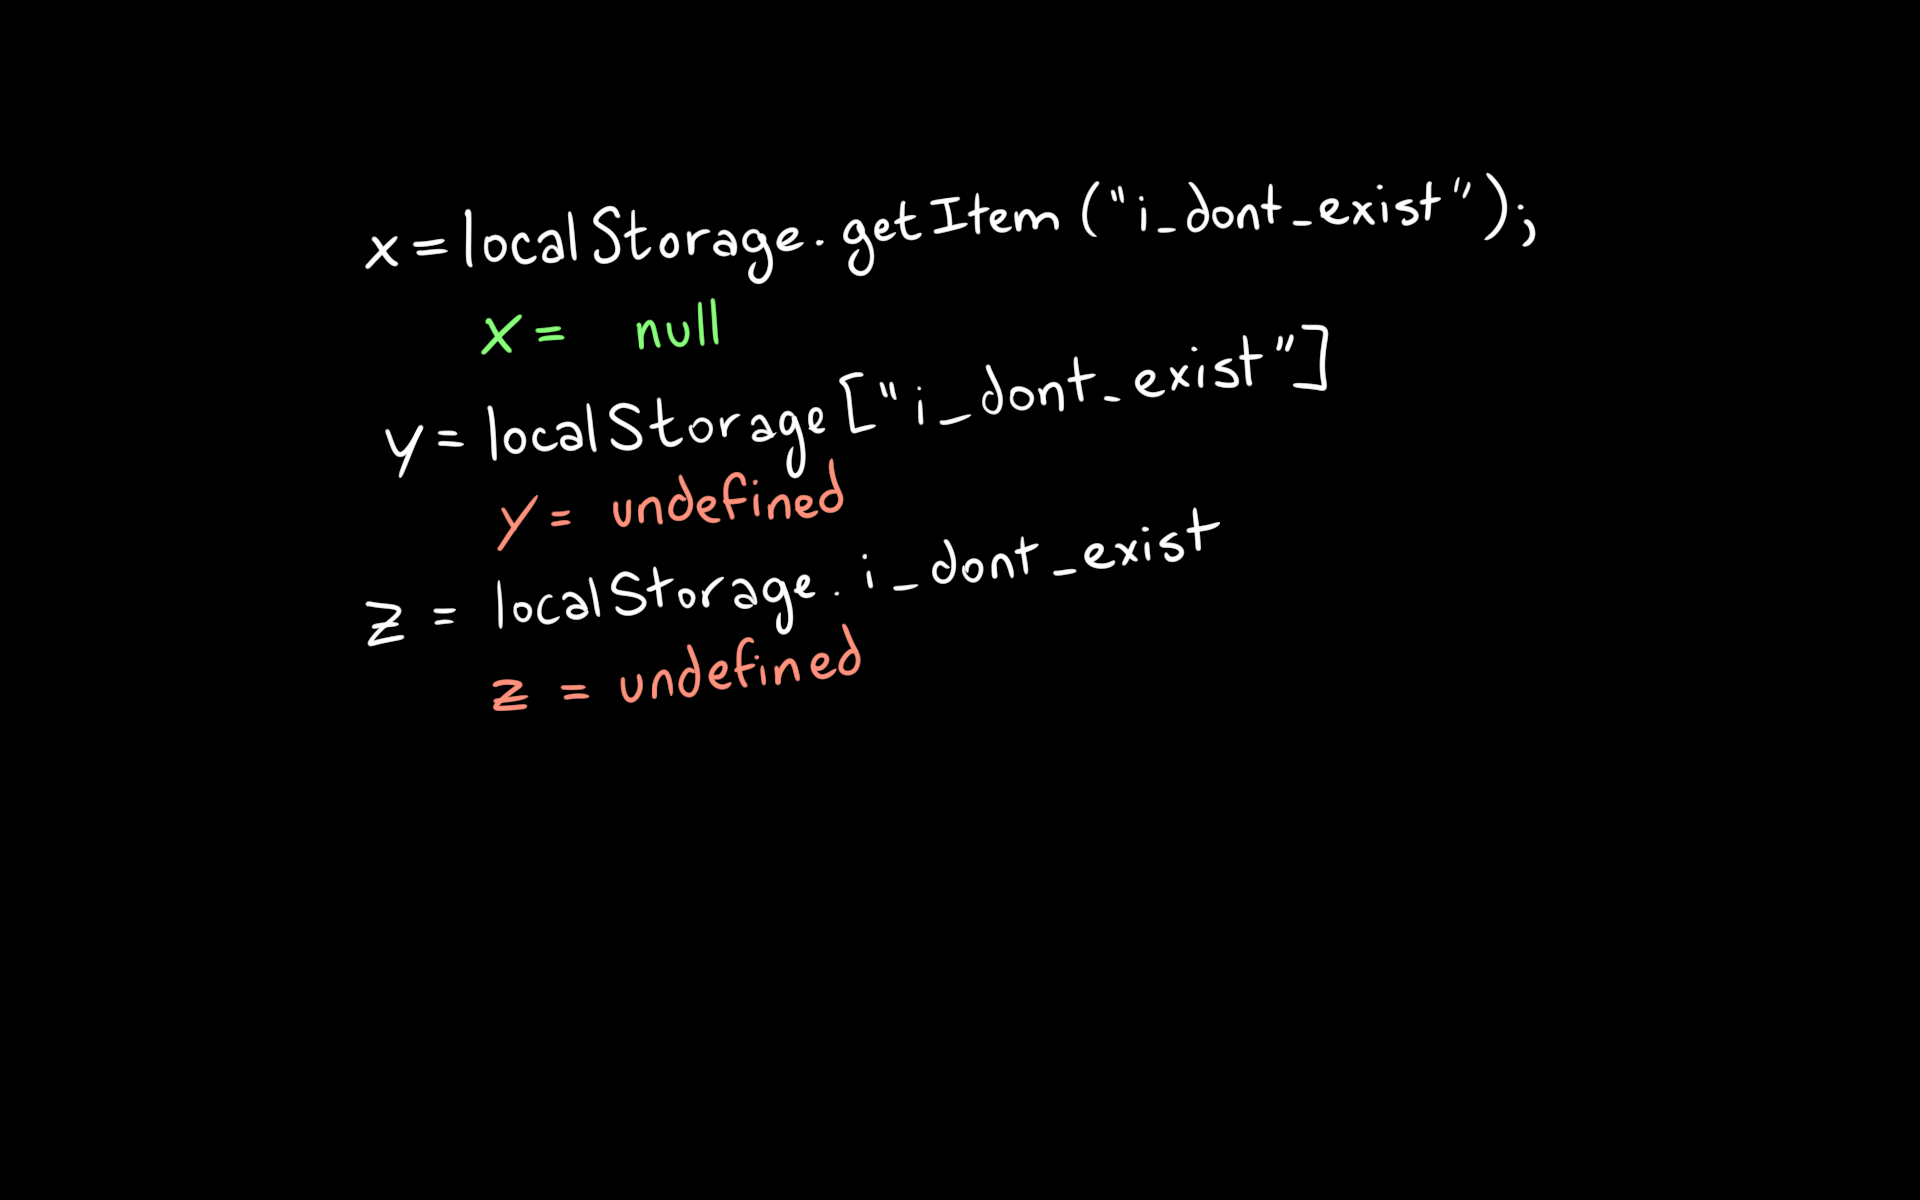 x = localStorage.getItem("i_dont_exist");
x = null
y = localStorage["i_dont_exist"]
y = undefined
z = localStorage.i_dont_exist
z = undefined